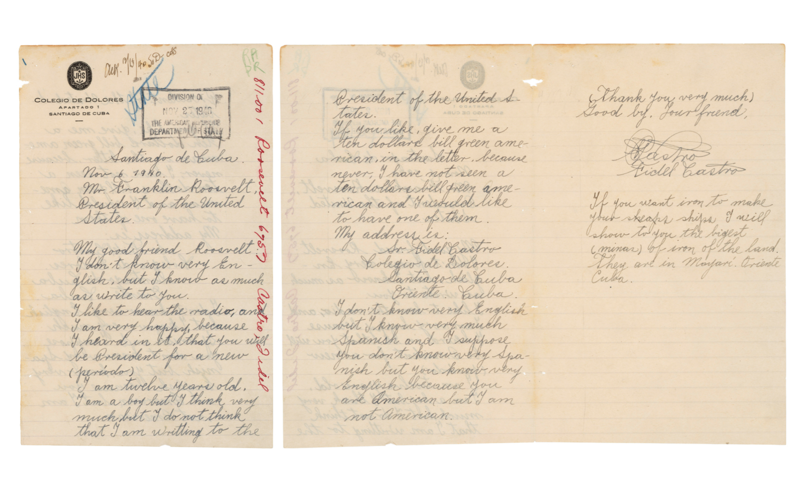 COLEGIO DE DOLORES
APARTADO 1
SANTIAGO DE CUBA
State
DIVISION OF
NOV 27 1940
DEPARTMENT OF STATE
811.001 Roosevelt, F.D./6957 Castro, Fidel
Santiago de Cuba.
Nov 6 1940
Mr Franklin Roosvelt,
President of the United
States.
My good friend Roosvelt
I don't know very En-
glish, but I know as much
as write to you.
I like to hear the radio, and
I am very happy, because
I heard in it, that you will
be President for a new
(periodo)
I am twelve years old.
I am a boy but I think very
much but I do not think
that I am writting to the
President of the United S-
tates.
If you like, give me a
ten dollars bill green ame-
rican, in the letter, because
never, I have not seen a
ten dollars bill green ame-
rican and I would like
to have one of them.
My address is:
Sr. Fidel Castro
Colegio de Dolores.
Santiago de Cuba
Oriente Cuba.
I don't know very English
but I know very much
Spanish and I suppose
you don't know very Spa-
nish but you know very
English because you
are American but I am
not American
(Thank you very much)
Good by. Your friend,
Castro
Fidel Castro
If you want iron to make
your sheaps ships I will
show to you the bigest
(minas) of iron of the land.
They are in Mayari. Oriente
Cuba.